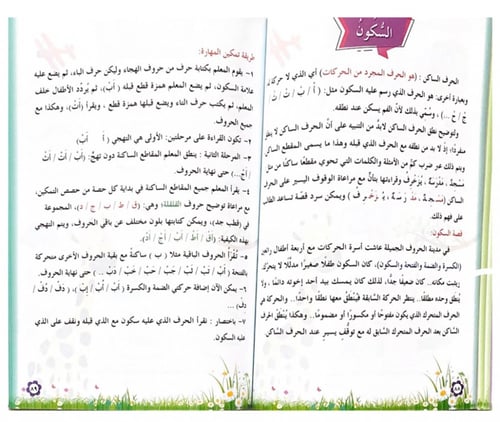 السُّكُونُ
الحرف الساكن : (هو الحرف المجرد من الحركات) أي الذي لا حركة له
وبعبارة أخرى: هو الحرف الذي رسم عليه السكون مثل: ( أْ / بْ / تْ / ثْ /
جْ / حْ ... ) ، وسُمِّي بذلك لأن الفم يسكن عند نطقه.
ولتوضيح نطق الحرف الساكن لابدَّ من التنبيه على أنَّ الحرف الساكن لا ينطق
منفردًا؛ إذ لا بد من نطقه مع الحرف الذي قبله وهذا ما يسمى المقطع الساكن
ويتم ذلك عبر ضرب كمٍّ من الأمثلة والكلمات التي تحوي مقطعًا ساكنًا من مثل
مَسْجِدٌ ، مَدْرَسَةٌ ، يُزَخْرِفُ وقراءتها بتأنٍّ مع مراعاة الوقوف اليسير على الحرف
الساكن (مَسْـجِدٌ ، مَدْ رَسَةٌ ، يُزَخْـرِفُ) ويمكن سرد قصة تساعد الطالب
على فهم ذلك.
قصة السكون:
في مدينة الحروف الجميلة عاشت أسرة الحركات مع أربعة أطفال رائعين
(الكسرة والضمة والفتحة والسكون)، كان السكون طفلًا صغيرًا مدلَّلًا لا يتحرَّك
مكانه.. كان ضعيفًا جدًّا، لذلك كان يمسك بيد أحد إخوته دائمًا ، ولا
يُنطق وحده مطلقًا.. ينطق الحركة السابقة فيُنطَق معها نطقًا واحدًا.. والحركة
هي الحرف المتحرك الذي يكون مفتوحًا أو مكسورًا أو مضمومًا.. وهكذا يُنطَق الحرف
الساكن بعد الحرف المتحرك السابق له مع توقُّفٍ يسيرٍ عند الحرف الساكن
٨٨
طريقة تمكين المهارة:
١- يقوم المعلم بكتابة حرف من حروف الهجاء وليكن حرف الباء، ثم يضع عليه
علامة السكون، ثم يضع المعلم همزة قطع قبله (أَبْ)، ثم يُردِّد الأطفال خلف
المعلم، ثم يكتب حرف التاء ويضع قبلها همزة قطع ، ويقرأ (أَتْ)، وهكذا مع
جميع الحروف.
٢- تكون القراءة على مرحلتين: الأولى هي التهجي ( أَ أَبْ)
٣- المرحلة الثانية : ينطق المعلم المقاطع الساكنة دون تهجٍّ: (أَبْ/ أَتْ/ أَثْ
/أَجْ...) حتى نهاية الحروف.
٤- يقرأ المعلم جميع المقاطع الساكنة في بداية كل حصة من حصص التمكين،
مع مراعاة توضيح حروف القلقلة؛ وهي: (ق / ط / ب / ج / د)، المجموعة
في (قطب جد)، ويمكن كتابتها بلون مختلف عن باقي الحروف، ويتم التهجي
بهذه الكيفية: (أَقْ / أَطْ / أَبْ / أَجْ / أَدْ).
٥- تُقْرَأُ الحروف الباقية مثلا ( ب) ساكنةً مع بقية الحروف الأخرى متحركة
بالفتحة ( أَبْ / تَبْ / ثَبْ / جَبْ / حَبْ / خَبْ / دَبْ ..) حتى نهاية الحروف.
٦- يمكن الآن إضافة حركتي الضمة والكسرة ( أَبْ / أُبْ / إِبْ)، ( دَفْ / دُفْ /
دِفْ) ...
٧- باختصار : نقرأ الحرف الذي عليه سكون مع الذي قبله ونقف على الذي
عليه السكون.
٨٩